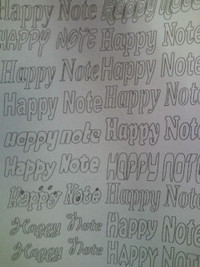 Happy Note Happy Note
HAPPY NOTE Happy Note
Happy Note Happy Note
Happy Note Happy Note
Happy note Happy Note
Happy Note HAPPY NOTE
Happy Note Happy Note
Happy Note Happy Note
Happy Note HAPPY NOTE